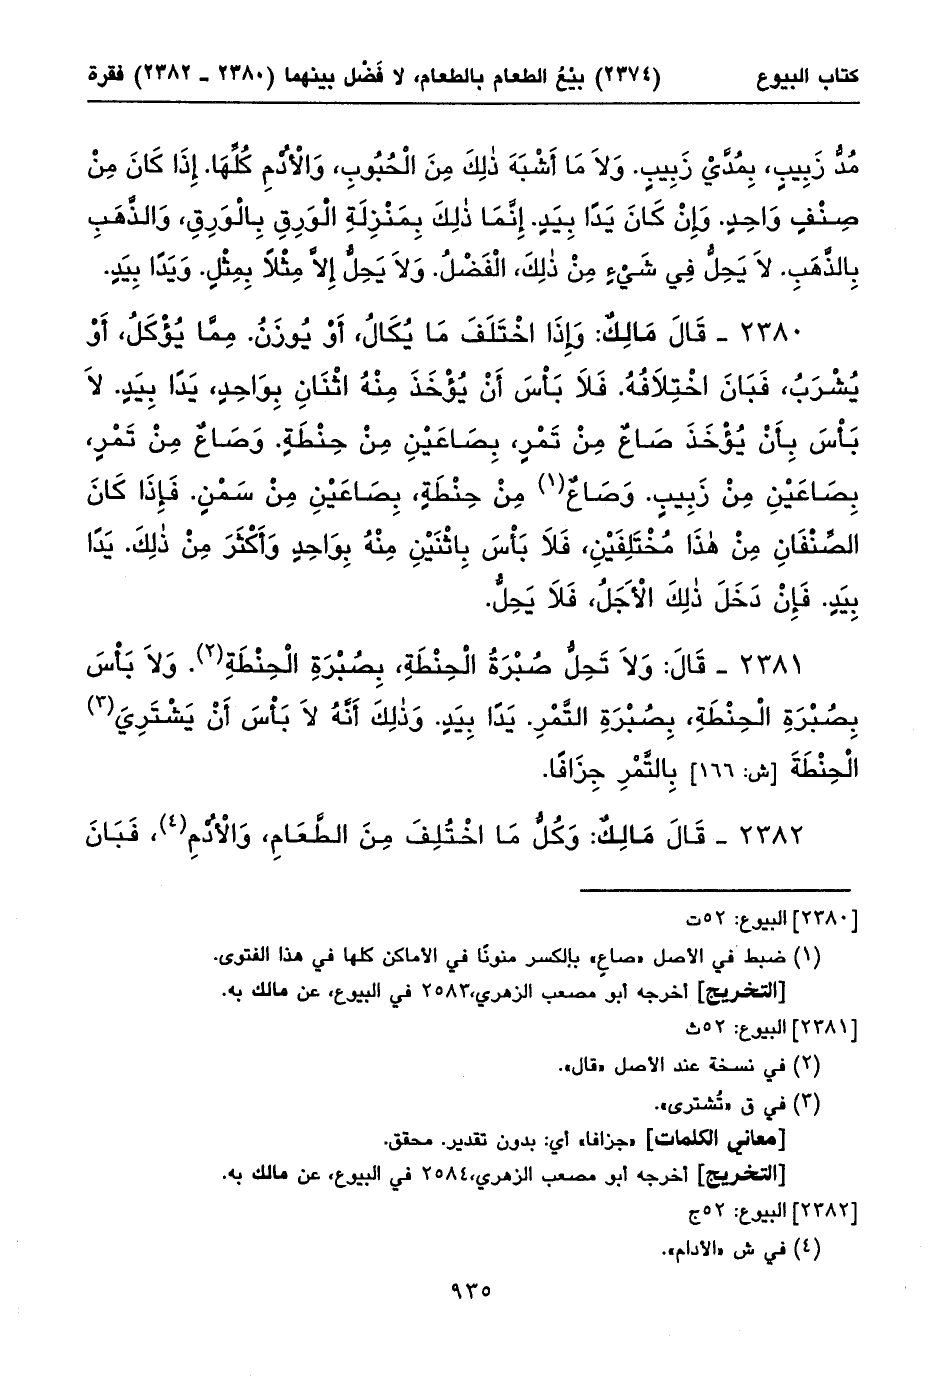 كتاب البيوع (٢٣٧٤) بيْعُ الطعام بالطعام، لا فَضْل بينهما (٢٣٨٠ - ٢٣٨٢) فقرة
مُدُّ زَبِيبٍ، بِمُدَّيْ زَبِيبٍ. وَلاَ مَا أَشْبَهَ ذٰلِكَ مِنَ الْحُبُوبِ، وَالْأُدُمِ كُلِّهَا. إِذَا كَانَ مِنْ
صِنْفٍ وَاحِدٍ. وَإِنْ كَانَ يَدًا بِيَدٍ. إِنَّمَا ذٰلِكَ بِمَنْزِلَةِ الْوَرِقِ بِالْوَرِقِ، وَالذَّهَبِ
بِالذَّهَبِ. لاَ يَحِلُّ فِي شَيْءٍ مِنْ ذٰلِكَ، الْفَضْلُ. وَلاَ يَحِلُّ إِلاَّ مِثْلاً بِمِثْلٍ. وَيَدًا بِيَدٍ.
٢٣٨٠ - قَالَ مَالِكٌ: وَإِذَا اخْتَلَفَ مَا يُكَالُ، أَوْ يُوزَنُ. مِمَّا يُؤْكَلُ، أَوْ
يُشْرَبُ، فَبَانَ اخْتِلَافُهُ. فَلاَ بَأْسَ أَنْ يُؤْخَذَ مِنْهُ اثْنَانِ بِوَاحِدٍ، يَدًا بِيَدٍ. لاَ
بَأْسَ بِأَنْ يُؤْخَذَ صَاعٌ مِنْ تَمْرٍ، بِصَاعَيْنِ مِنْ حِنْطَةٍ. وَصَاعٌ مِنْ تَمْرٍ،
بِصَاعَيْنِ مِنْ زَبِيبٍ. وَصَاعٌ(١) مِنْ حِنْطَةٍ، بِصَاعَيْنِ مِنْ سَمْنٍ. فَإِذَا كَانَ
الصِّنْفَانِ مِنْ هٰذَا مُخْتَلِفَيْنِ، فَلاَ بَأْسَ بِاثْنَيْنِ مِنْهُ بِوَاحِدٍ وَأَكْثَرَ مِنْ ذٰلِكَ. يَدًا
بِيَدٍ. فَإِنْ دَخَلَ ذٰلِكَ الْأَجَلُ، فَلاَ يَحِلُّ.
٢٣٨١ - قَالَ: وَلاَ تَحِلُّ صُبْرَةُ الْحِنْطَةِ، بِصُبْرَةِ الْحِنْطَةِ(٢). وَلاَ بَأْسَ
بِصُبْرَةِ الْحِنْطَةِ، بِصُبْرَةِ التَّمْرِ. يَدًا بِيَدٍ. وَذٰلِكَ أَنَّهُ لاَ بَأْسَ أَنْ يَشْتَرِيَ(٣)
الْحِنْطَةَ [ش: ١٦٦] بِالتَّمْرِ جِزَافًا.
٢٣٨٢ - قَالَ مَالِكٌ: وَكُلُّ مَا اخْتُلِفَ مِنَ الطَّعَامِ، وَالْأُدُمِ(٤)، فَبَانَ
[٢٣٨٠] البيوع: ٥٢ت
(١) ضبط في الأصل «صاعٍ» بالكسر منونًا في الأماكن كلها في هذا الفتوى.
[التخريج] أخرجه أبو مصعب الزهري،٢٥٨٣ في البيوع، عن مالك به.
[٢٣٨١] البيوع: ٥٢ث
(٢) في نسخة عند الأصل «قال».
(٣) في ق «تُشترى».
[معاني الكلمات] «جزافا» أي: بدون تقدير. محقق.
[التخريج] أخرجه أبو مصعب الزهري،٢٥٨٤ في البيوع، عن مالك به.
[٢٣٨٢] البيوع: ٥٢ج
(٤) في ش «الأدام».
٩٣٥